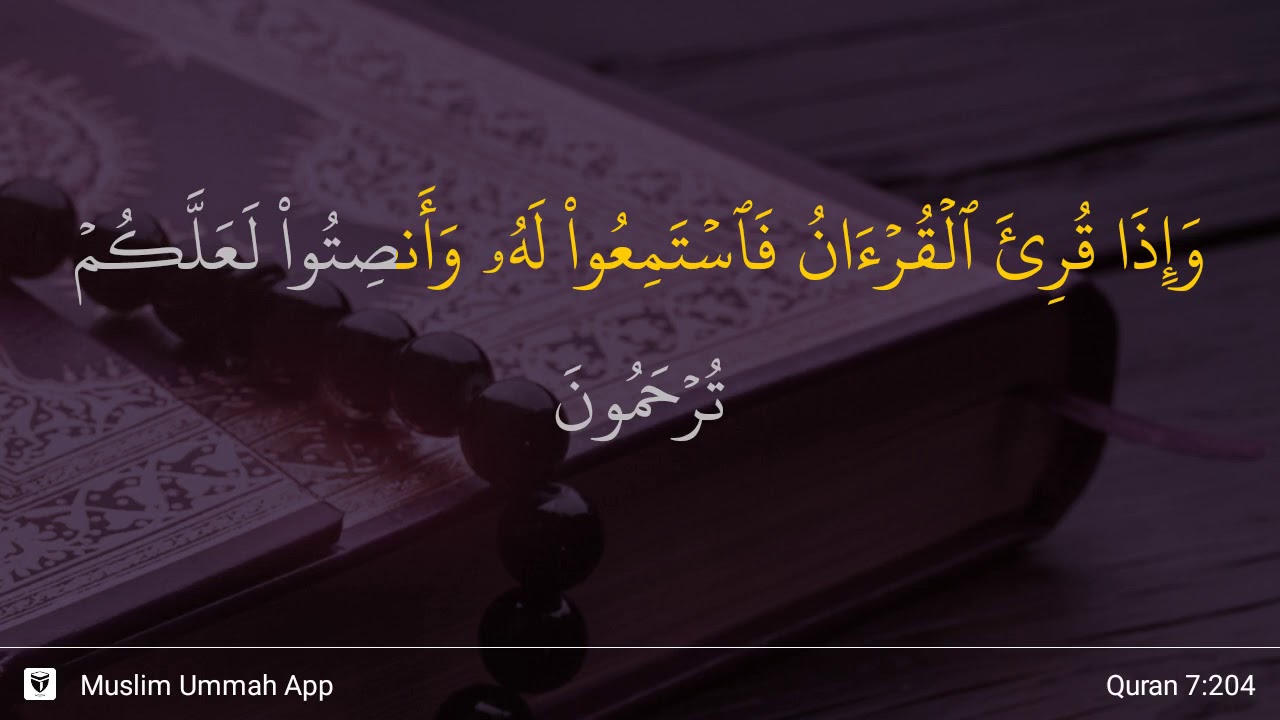 وَإِذَا قُرِئَ ٱلْقُرْءَانُ فَٱسْتَمِعُوا۟ لَهُۥ وَأَنصِتُوا۟ لَعَلَّكُمْ
تُرْحَمُونَ
Muslim Ummah App
Quran 7:204